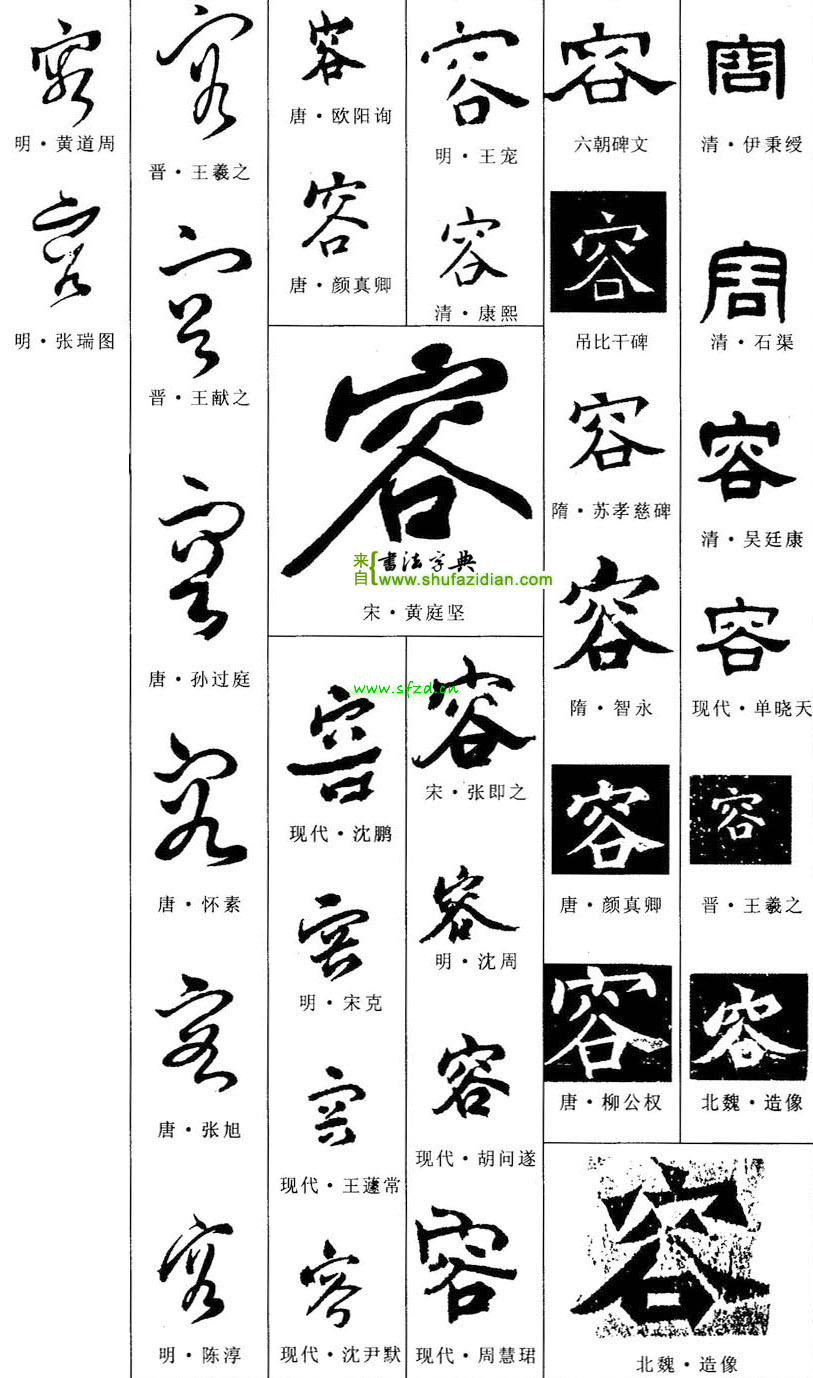 容
清·伊秉绶
容
清·石渠
容
清·吴廷康
容
现代·单晓天
容
晋·王羲之
容
北魏·造像
容
六朝碑文
容
吊比干碑
容
隋·苏孝慈碑
容
隋·智永
容
唐·颜真卿
容
唐·柳公权
容
北魏·造像
容
明·王宠
容
清·康熙
容
唐·欧阳询
容
唐·颜真卿
容
来自{书法字典
www.shufazidian.com
宋·黄庭坚
容
宋·张即之
容
明·沈周
容
现代·胡问遂
容
现代·周慧珺
www.sfzd.cn
容
现代·沈鹏
容
明·宋克
容
现代·王蘧常
容
现代·沈尹默
容
晋·王羲之
容
晋·王献之
容
唐·孙过庭
容
唐·怀素
容
唐·张旭
容
明·陈淳
容
明·黄道周
容
明·张瑞图